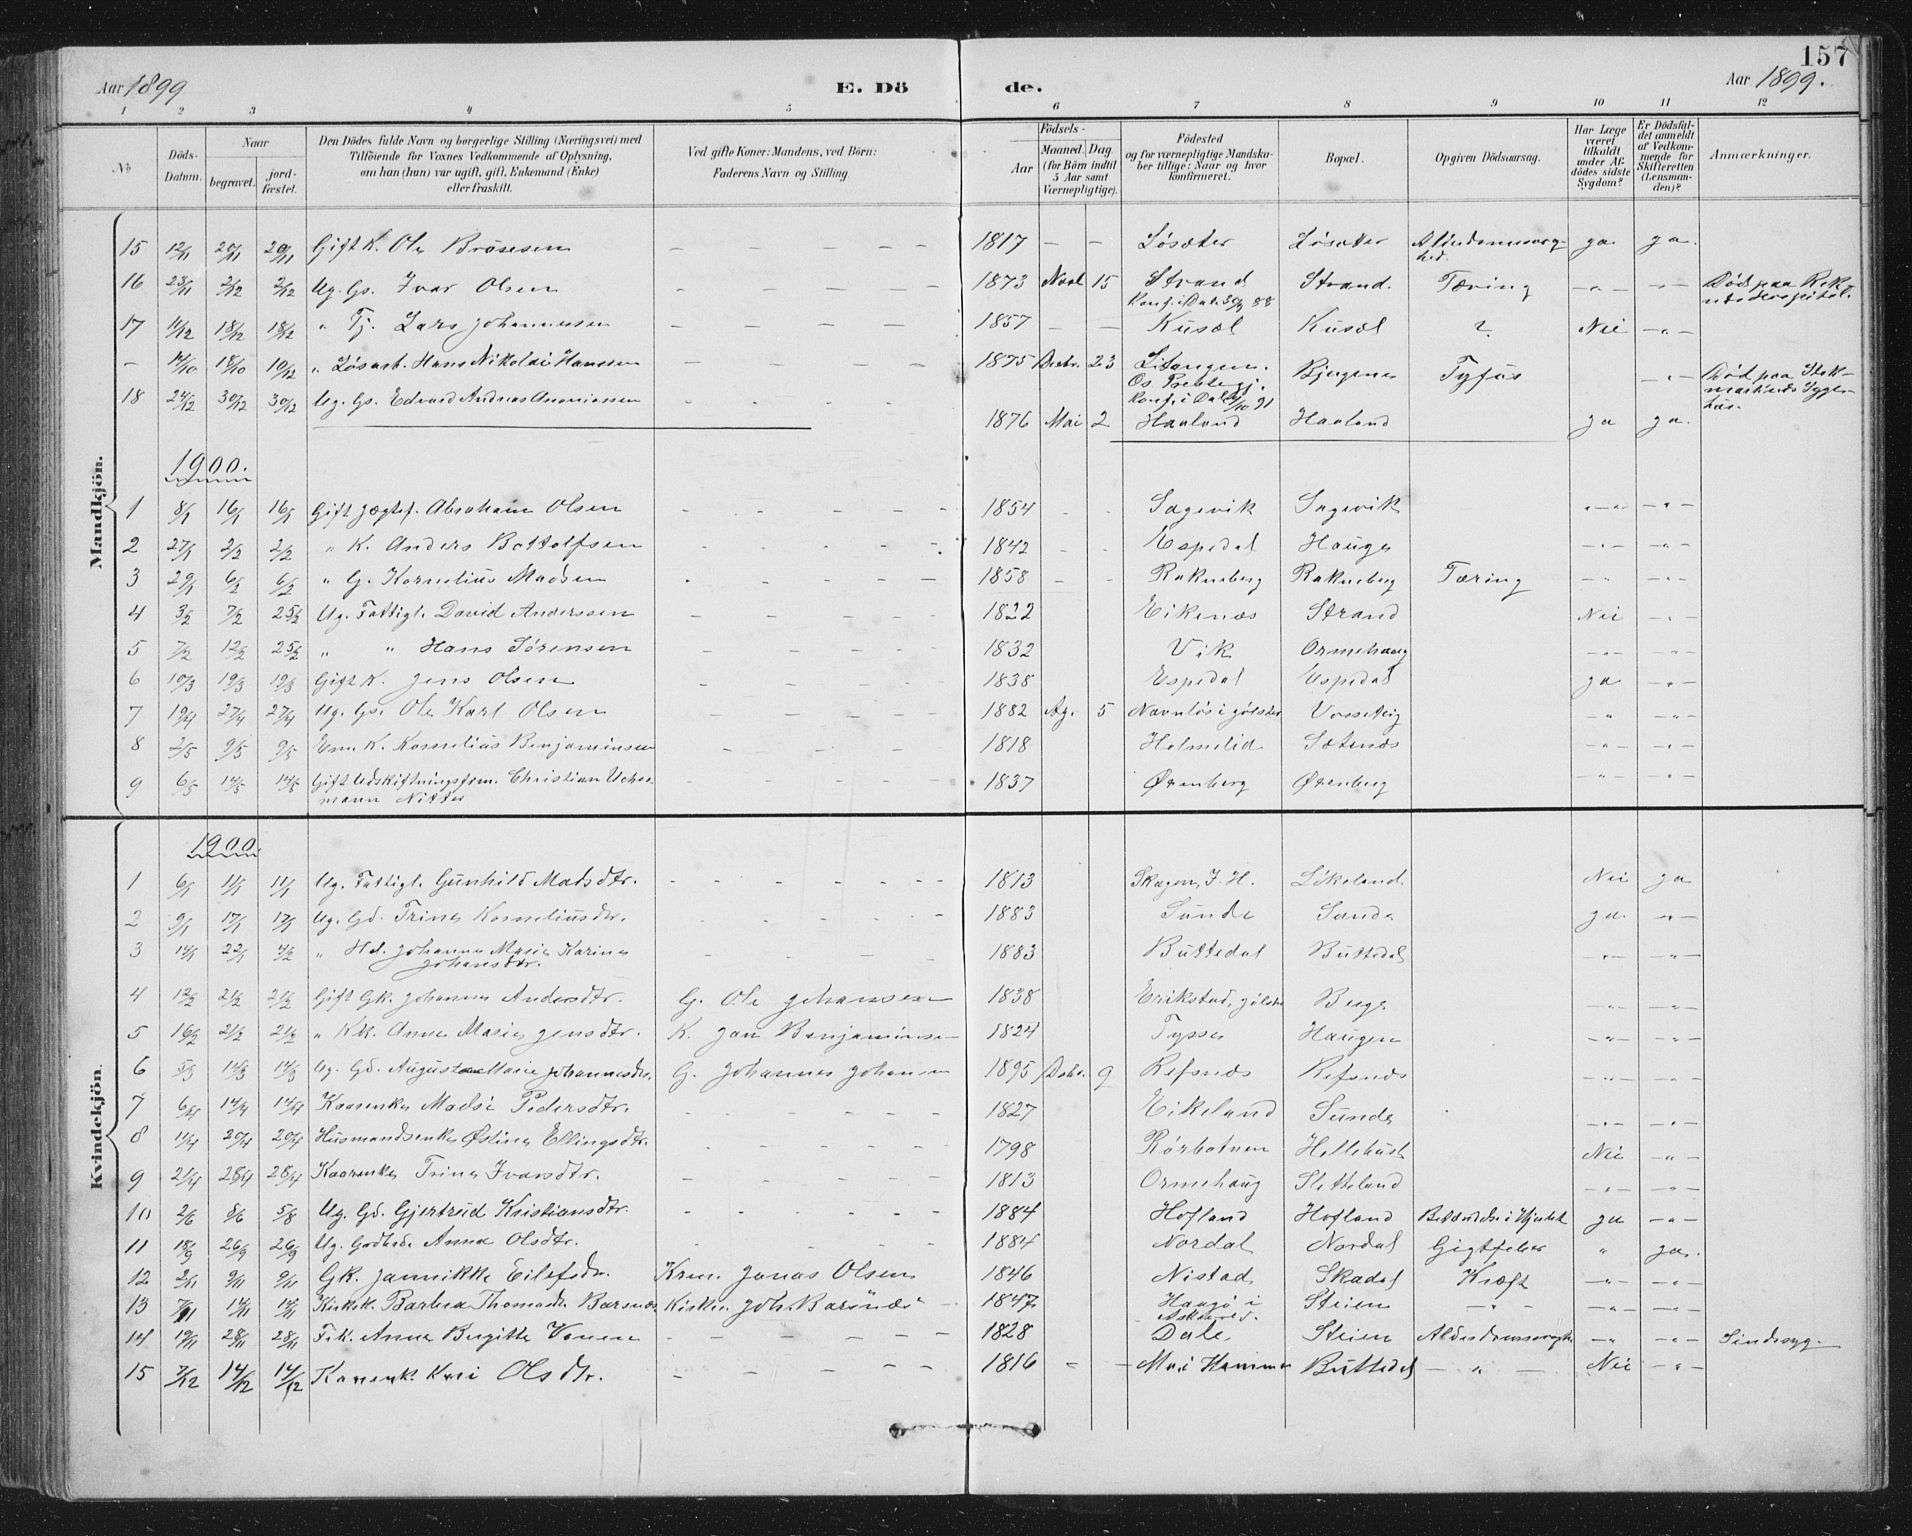 157
Aar 1899 E. Dö de. Aar 1899.
1 2 3 4 5 6 7 8 9 10 11 12
No Döds-Datum. Naar begravet. jord-fæstet. Den Dödes fulde Navn og borgerlige Stilling (Næringsvei) med Tilföiende for Voxnes Vedkommende af Oplysning, om han (hun) var ugift, gift, Enkemand (Enke) eller fraskilt. Ved gifte Koner: Mandens, ved Börn: Faderens Navn og Stilling. Födsels- Aar Maaned. Dag (for Börn indtil 5 Aar samt Værnepligtige). Födested og for værnepligtige Mandskaber tillige: Naar og hvor konfirmeret. Bopæl. Opgiven Dödsaarsag. Har Læge været tilkaldt under Afdödes sidste Sygdom? Er Dödsfaldet anmeldt af Vedkommende for Skifteretten (Lensmanden)? Anmærkninger.
Mandkjön.
15 12/11 20/11 20/11 Gift K. Ole Brösesen – – – – – 1817 – – Løsæter Løsæter ja ja
16 23/11 2/12 2/12 Ug. Gs. Ivar Olsen – – – – 1873 Novb 15 Strand Strand. Tæring – " – – " – Død paa
Konf. i Dale 88
17 11/12 18/12 18/12 " Tj. Lars Johannessen – – – – 1857 – – Kusæl Kusæl ? Nei – " –
– 14/10 18/10 10/12 " Løsarb. Hans Nikolai Hanssen – – – – 1875 23 Bjergene Tyfus – " – Død paa
Os
18 24/12 30/12 30/12 Ug. Gs. Edvard Andreas Ananiassen
Konf. i Dale 91
1876 Mai 2 Haaland Haaland ja ja.
1900.
1 8/1 16/1 16/1 Gift Jægtef. Abraham Olsen 1854 Sagevik Sagevik – " – – " –
2 27/1 2/2 2/2 " K. Anders Bottolfsen 1842 Espedal Hauge – " – – " –
3 29/1 6/2 6/2 " G. Kornelius Madsen 1858 – – Rakneberg Rakneberg Tæring – " – – " –
4 3/2 7/2 25/2 Ug. Fattigl. David Anderssen 1822 Eikenæs Strand Nei – " –
5 7/2 12/2 25/2 " " Hans Sørensen 1832 Vik Ormehaug – " – – " –
6 10/3 19/3 19/3 Gift K. Jens Olsen 1838 Espedal Espedal ja – " –
7 19/4 27/4 27/4 Ug. Gs. Ole Karl Olsen 1882 Ag. 5 Navnløs i Jølster Vosseteig " – " –
8 2/5 9/5 9/5 Em. K. Kornelius Benjaminsen 1818 Holmelid Sætenæs – " – – " –
9 6/5 14/5 14/5 Gift Udskiftningsform. Christian Ucher-
mann Nitter 1837 Ørenberg Ørenberg – " – – " –
Kvindekjön.
1900
1 6/1 11/1 11/1 Ug. Fattigl. Gunhild Madsdtr. 1813 Skagen, I. H. Løkeland Nei ja
2 9/1 17/1 17/1 Ug. Gd. Trine Korneliusdtr. 1883 Sunde Sunde ja – " –
3 14/1 22/1 4/2 " Hd. Johanna Marie Karine
Johansdtr. 1883 Buttedal Buttedal – " – – " –
4 12/2 21/2 21/2 Gift Gk. Johanne Andersdtr. G. Ole Johansen 1838 Erikstad, Jølster Berge – " – – " –
5 16/2 21/2 21/2 " Kk. Anne Marie Jensdtr. K. Jan Benjaminsen 1824 Tysse Haugen – " – – " –
6 5/3 14/3 14/3 Ug. Gd. Augusta Marie Johannesdtr. G. Johannes Johansen 1895 9 Refsnæs Refsnæs – " – – " –
7 6/4 14/4 14/4 Kaarenke Madsi Pedersdtr. 1827 Eikeland Sunde – " – – " –
8 11/4 20/4 20/4 Husmandsenke Østine Ellingsdtr. 1798 Rørbotnen Hellebust Nei – " –
9 21/4 28/4 28/4 Kaarenke Trine Ivarsdtr. 1813 Ormehaug Sletteland – " – – " –
10 2/6 8/6 5/8 Ug. Gd. Gjertrud Kristiansdtr. 1884 Hofland Hofland ja – " –
11 18/9 26/9 26/9 Ug. Anna Olsdtr. 1884 Nordal Nordal Gigtfeber " ja.
12 2/11 9/11 9/11 Gk. Jannikke Eilefsdtr. Jonas Olsen 1846 Nistad Skadal Kræft – " – – " –
13 7/11 14/11 14/11 Barbra Thomasdtr. Barsnæs Joh. Barsnæs 1847 Steien – " – – " – – " –
14 19/11 28/11 28/11 Anne Birgitte Vonen 1828 Dale Steien – " – – " – Sindssyg.
15 7/12 14/12 14/12 Kaarenk. Kari Olsdtr. 1816 – – Buttedal – " – Nei – " –